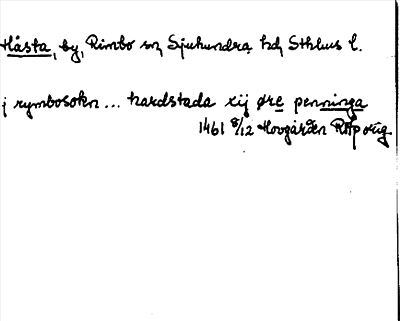 Håsta, by, Rimbo sn, Sjuhundra hd, Sthlms l.
j rymbosokn ... hardstada xij øre penninga
1461 8/12 Hovgården RAp orig